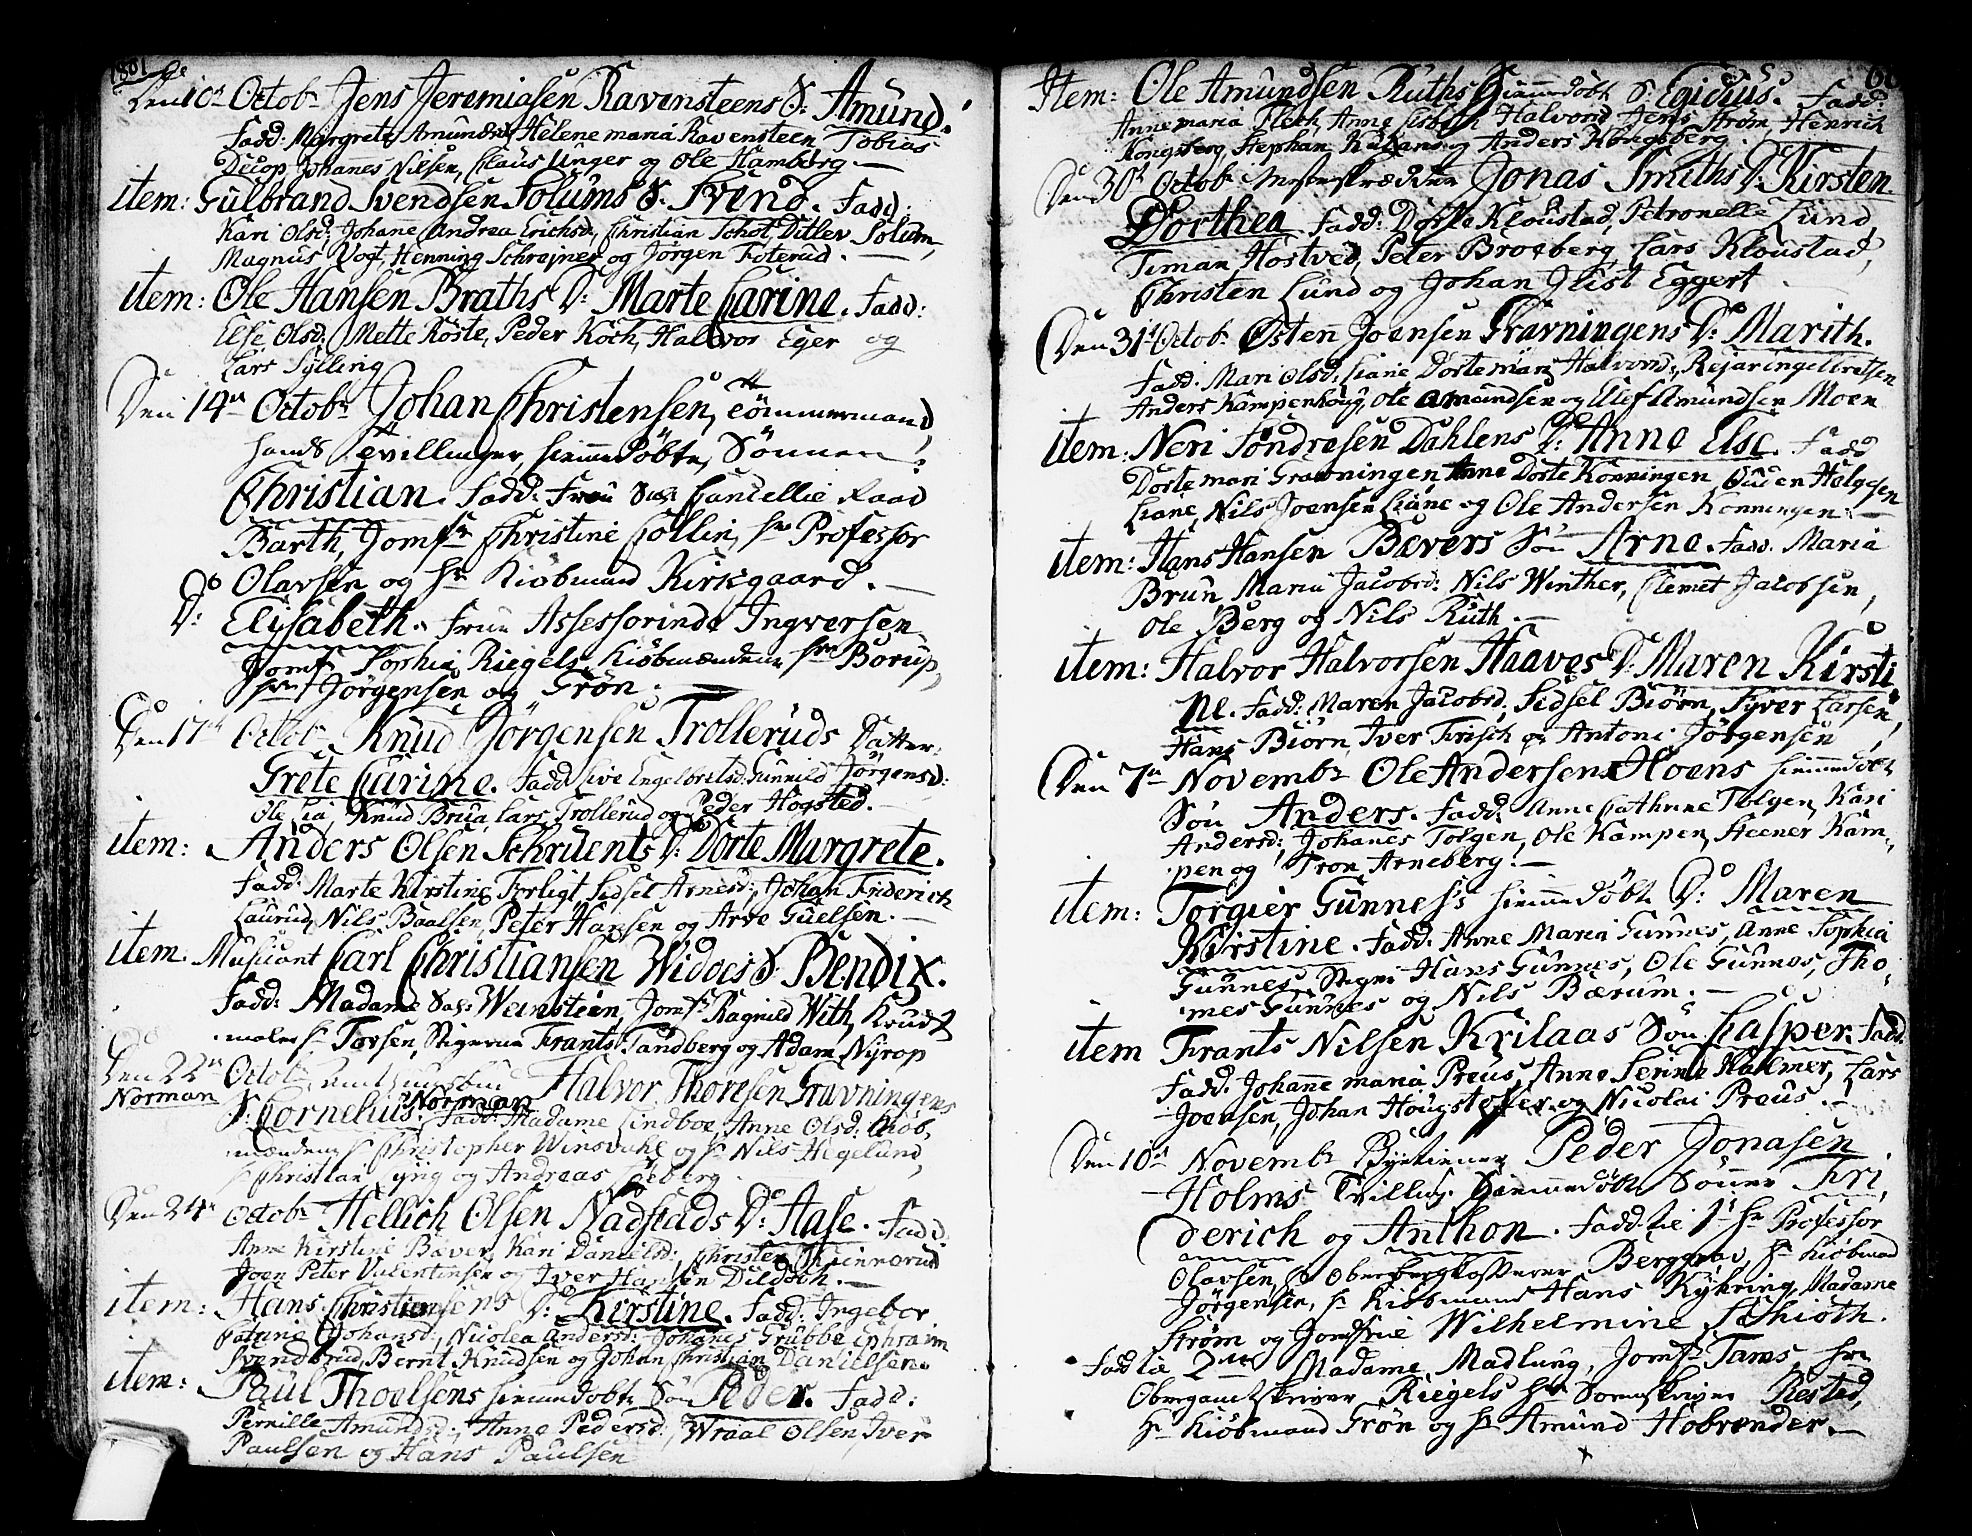 1801
Den 10de Octobr Jens Jeremiasen Ravensteens S: Amund.
Fadd: Margrete Amundsd, Helene maria Ravensteen, Tobias
Decop, Johannes Nilsen, Claus Unger og Ole Hamberg. —
item: Gulbrand Svendsen Solums S. Svend. Fadd:
Kari Olsd:, Johanne Andrea Erichsd, Christian Schot, Ditlev Solum,
Magnus Vogt, Henning Schrøpner og Jørgen Foterud. —
item: Ole Hansen Braths D: Marte Carine. Fadd:
Else Olsd: Mette Røste, Peder Koch, Halvor Eger og
Lars Sylling
Den 14de Octobr Johan Christensen, Tömmermand,
hands Tvillinger, hiemmedöbte, Sönnen:
Christian. Fadd: Frue Sal: Cancellie Raad
Barth, Jomfr Christine Collin, hr Professor
Olavsen og Hr Kiöbmand Kirkgaard. —
Do D: Elisabeth. Frue Assessorinde Ingversen
Jomf Sophie Riegels, Kiöbmændene hrr Borup,
hrr Jörgensen og Grön. —
Den 17de Octobr Knud Jörgensen Trolleruds Datter:
Grete Carine. Fadd: Live Engelbretsd: Gunnild Jörgensd:
Ole Lia, Knud Brua, Lars Trollerud og Peder Högsted. —
item: Anders Olsen Schruents D: Dorte Margrete.
Fadd: Marte Kirstine Fyrligt, Sidsel Arnesd:, Johan Friderich
Laurud, Nils Baalsen, Peter Hansen og Arve Guelsen. —
item. Musicant Carl Christiansen Widoes S. Bendix.
Fadd: Madame Sal: Weinsteen, Jomfr Ragnild With, Krudt
møler hr Torsen, Stigerne Frants Tandberg og Adam Nyrop
Den 22de Octobr Halvor Thoresen Gravningens
Norman S: Cornelius Norman. Fadd: Madame Lindboe, Anne Olsd: Kiöb,
mændene hr Christopher Winsvahl og hr Nils Hegelund,
hr Christian Kyrig og Andreas Sieberg.
Den 24de Octobr Hellich Olsen Nadstads D: Aase. Fadd:
Anne Kirstine Bæver, Kari Danielsd:, Christen Skinnerud
Joen Peter Valentinsen og Iver Hansen Dildoch. —
item: Hans Christiansens D: Kirstine. Fadd: Ingebor
Catrine Johansd:, Nicolea Andersd: Johanes Grubbe, Ephraim
Svendsrud, Bernt Knudsen og Johan Christian Danielsen.
item: Paul Thoelsens hiemmedøbte Sön Peder. Fadd:
Pernille Amundsd:, Anne Pedersd:, Wraal Olsen, Iver
Paulsen og Hans Paulsen
Item: Ole Amundsen Ruths hiemmedøbt S. Egidius. Fadd:
Anne maria Pleth, Anne Lisbeth Halvorsd, Jens Strøm, Henrich
Kongsberg, Stephan Kulaas og Anders Kongsberg.
Den 30te Octobr Mesterskrædder Jonas Smiths D: Kirsten
Dorthea. Fadd: Dorte Kloustad, Petronelle Lund,
Timan Hostved, Peter Broeberg, Lars Kloustad,
Christen Lund og Johan Qlist Eggert.
Den 31te Octobr Østen Joensen Gravningens D: Marith.
Fadd: Mari Olsd: Liane, Dorte mari Halvorsd:, Rejar ingelbretsen
Anders Kampenhoug, Ole Amundsen og Ellef Amundsen Moen
item: Neri Sondresen Dahlens D: Anne Else. Fadd
Dorte mari Gravningen, Anne Dorte Konningen, Guden Halgesen
Liane, Nils Joensen Liane og Ole Andersen Konningen. —
item: Hans Hansen Bævers Sön Arne. Fadd. Maria
Brun, Maria Jacobsd: Nils Winther, Clemet Jacobsen,
Ole Berg og Nils Ruth. —
item: Halvor Halvorsen Haaves D: Maren Kirsti
ne. Fadd: Maren Jacobsd:, Sidsel Biørn, Syver Larsen,
Hans Biørn, Iver Frisch og Antoni Jörgensen
Den 7de Novembr Ole Andersens Hoens hiemmedöbt
Sön Anders. Fadd: Anne Cathrine Tolgen, Kari
Andersd:, Johanes Tolgen, Ole Kampen, Steener Kam,
pen og Tron Arneberg. —
item: Torgier Gunnes's hiemmedöbte D: Maren
Kirstine. Fadd: Anne Maria Gunnes, Anne Sophia
Gunnes, Stigr Hans Gunnes, Ole Gunnes, Tho,
mes Gunnes og Nils Bærum. —
item Frants Nilsen Krilaas Sön Casper. Fadd:
Fadd: Johanne maria Preus, Anne Serine Halmer, Lars
Joensen, Johan Hougstøfer og Nicolai Preus. —
Den 10de Novembr Bytiener Peder Jonasen
Holms Tvilling. hiemmedöbte Sönner Fri,
derich og Anthon. Fadd. til 1ste hr Professor
Olavsen, hr Oberbergkasserer Berggrav, hr Kiöbmand
Jørgensen, hr Kiöbmand Hans Kyhring, Madame
Strøm og Jomfrue Wilhelmine Schioth.
Fadd til 2den Madame Madlung, Jomfr Tams, hr
Obergantskriver Riegels hr Sorenskriver Rested,
hr Kiöbmand Grön og hr Amund Hobrender. —